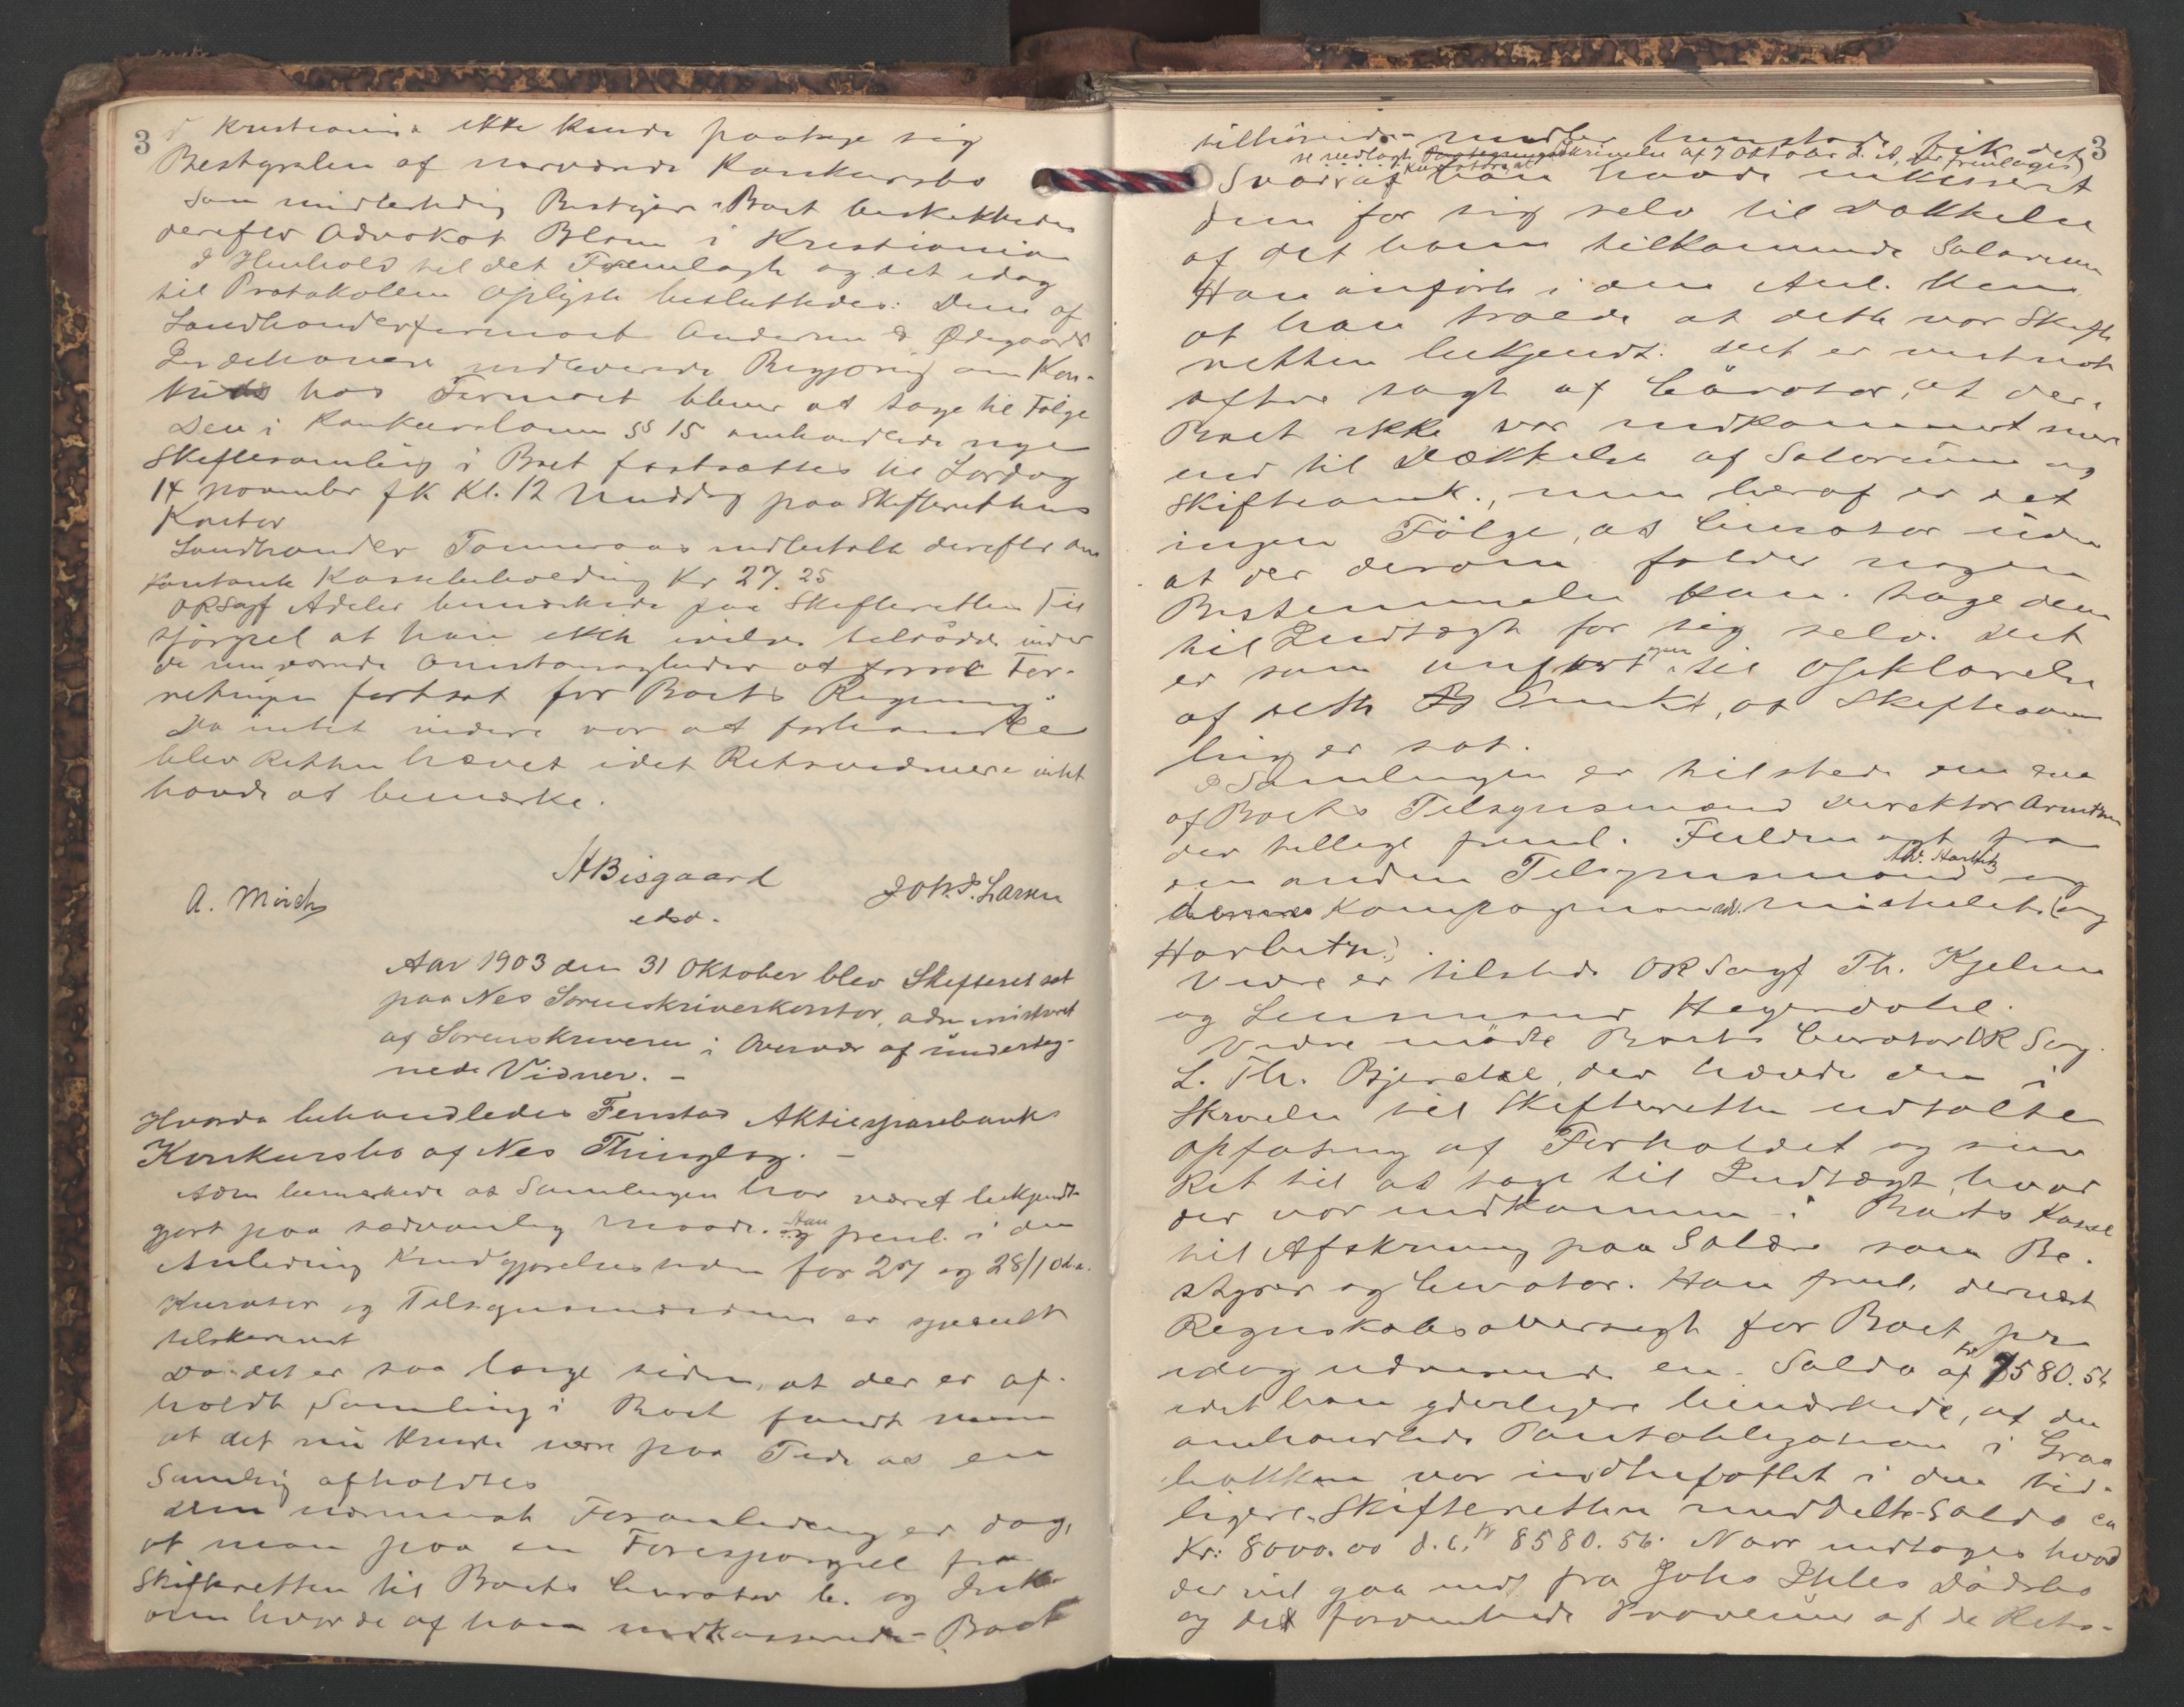 3
Kristiania ikke kunde paatage sig
Bestyrelsen af nærværende Konkursbo
Som midlertidig Bestyrer i Boet beskikkedes
derefter Advokat Blom i Kristiania
I Henhold til det Fremlagte og det idag
til Protokollen Oplyste besluttedes: Den af
Landhandlerfirmaet Andersen & Ødegaards
Indehavere indleverede Begjæring om Kon-
kurs hos Firmaet bliver at tage til Følge
Den i Konkursloven § 15 omhandlede nye
Skiftesamling i Boet fastsættes til Lørdag
14 november fk Kl. 12 Middag paa Skifterettens
Kontor
Landhandler Tommeraas indbetalte derefter den
kontante Kassebeholdning Kr 27.25
ORSagf Adeler bemærkede paa Skifterettens For
spørgsel at han ikke vilde tilraade under
de nuværende Omstændigheder at For-
retningen fortsat for Boets Regning
Da intet videre var at forhandle
blev Retten hævet idet Retsvidnerne intet
havde at bemærke.
HBisgaard
A. Mörch
Joh. P. Larsen
edsv.
Aar 1903 den 31 Oktober blev Skifteret sat
paa Nes Sorenskriverkontor, administreret
af Sorenskriveren i Overvær af underteg-
nede Vidner. -
Hvorda behandledes Fenstad Aktiesparebanks
Konkursbo af Nes Thinglag. -
Adm bemærkede at Samlingen har været bekjendt-
gjort paa sædvanlig Maade. Han og freml. i den
Anledning Kundgjørelsestidende for 27 og 28/10 d.a.
Kurator og Tilsynsmændene er specielt
tilskrevet
Da det er saa længe siden, at der er af-
holdt Samling i Boet fandt man
at det nu kunde være paa Tide at en
Samling afholdtes
Den nærmeste Foranledning er dog,
at man paa en Forespørgsel fra
Skifteretten til Boets Curator
om hvor de af ham indkasserede Boet
3
tilhørende Midler henstode fik det
se vedlagte Skrivelse af 7 Oktober d. A. der fremlages
Svar at han havde inkasseret
dem for sig selv til Dækkelse
af det ham tilkommende Salarium
Han anførte i den Anl.
at han troede at dette var Skifte
retten bekjendt. Det er vistnok
oftere sagt af Curator, at der i
Boet ikke var indkommet mere
end til Dækkelse af Salarium og
Skifteomk., men heraf er det
ingen Følge, at Curator uden
at der derom falder nogen
Bestemmelse kan tage dem
til Indtægt for sig selv. Det
er som anført til Opklarelse
af dette Punkt, at Skiftesam
ling er sat.
I Samlingen er tilstede en
af Boets Tilsynsmænd Direktør Arntzen
der tillige freml. Fuldmagt fra
en anden Tilsynsmand Adv. Harbitz og
dennes Kompagnon adv. Michelet (og
Harbitz)
Videre er tilstede ORSagf Th. Kjelsen
og Lensmand Hegerdahl.
Videre mødte Boets Curator OR Sag
L. Th. Bjerdal, der hævde den i
Skrivelse til Skifteretten udtalte
Opfatning af Forholdet og sin
Ret til at tage til Indtægt, hvad
der var indkommen i Boets Kasse
til Afskrivning paa Salær som Be-
styrer og Curator. Han freml. dernæst
Regnskabsoversigt for Boet pr
idag udvisende en Saldo af kr 7580.56
idet han yderligere bemærkede, at den
omhandlede Pantobligation i Graa
bakken var indbefattet i den tid-
ligere Skifteretten meddelte Saldo ca
Kr: 8000.00 d.e. kr 8580.56. Naar undtages hvad
der vil gaa ind fra Johs Ihles Dødsbo
og det forventede Provenue af de Rets-